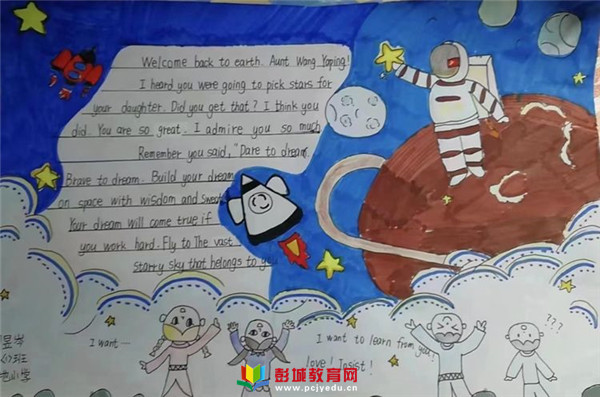 Welcome back to earth. Aunt Wang Yaping!
I heard you were going to pick stars for
your daughter. Did you get that? I think you
did. You are so great. I admire you so much
Remember you said, "Dare to dream.
Brave to dream. Build your dream
on space with wisdom and sweat
Your dream will come true if
you work hard. Fly to The vast
starry sky that belongs to you
I want —
I want to learn from you!
love! Insist!
???
彭城教育网
www.pcjyedu.cn